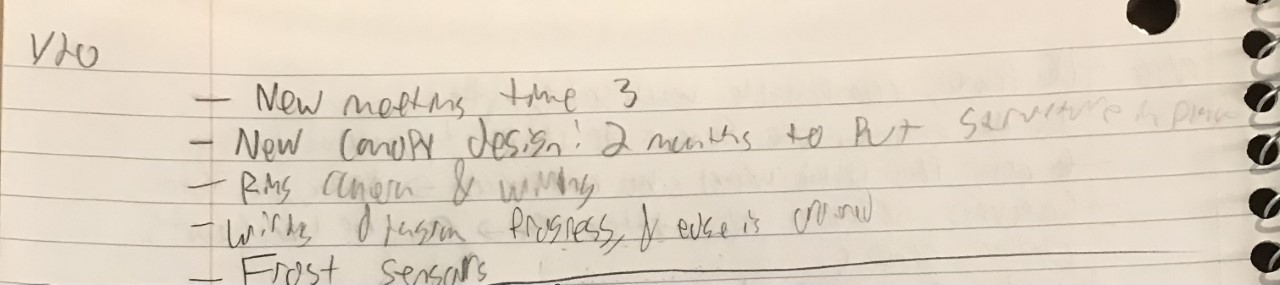 1/20
- New meeting time 3
- New Canopy design: 2 months to Put structure in place
- Ring Camera & wiring
- Wiring diagram Progress, & edge is
- Frost sensors